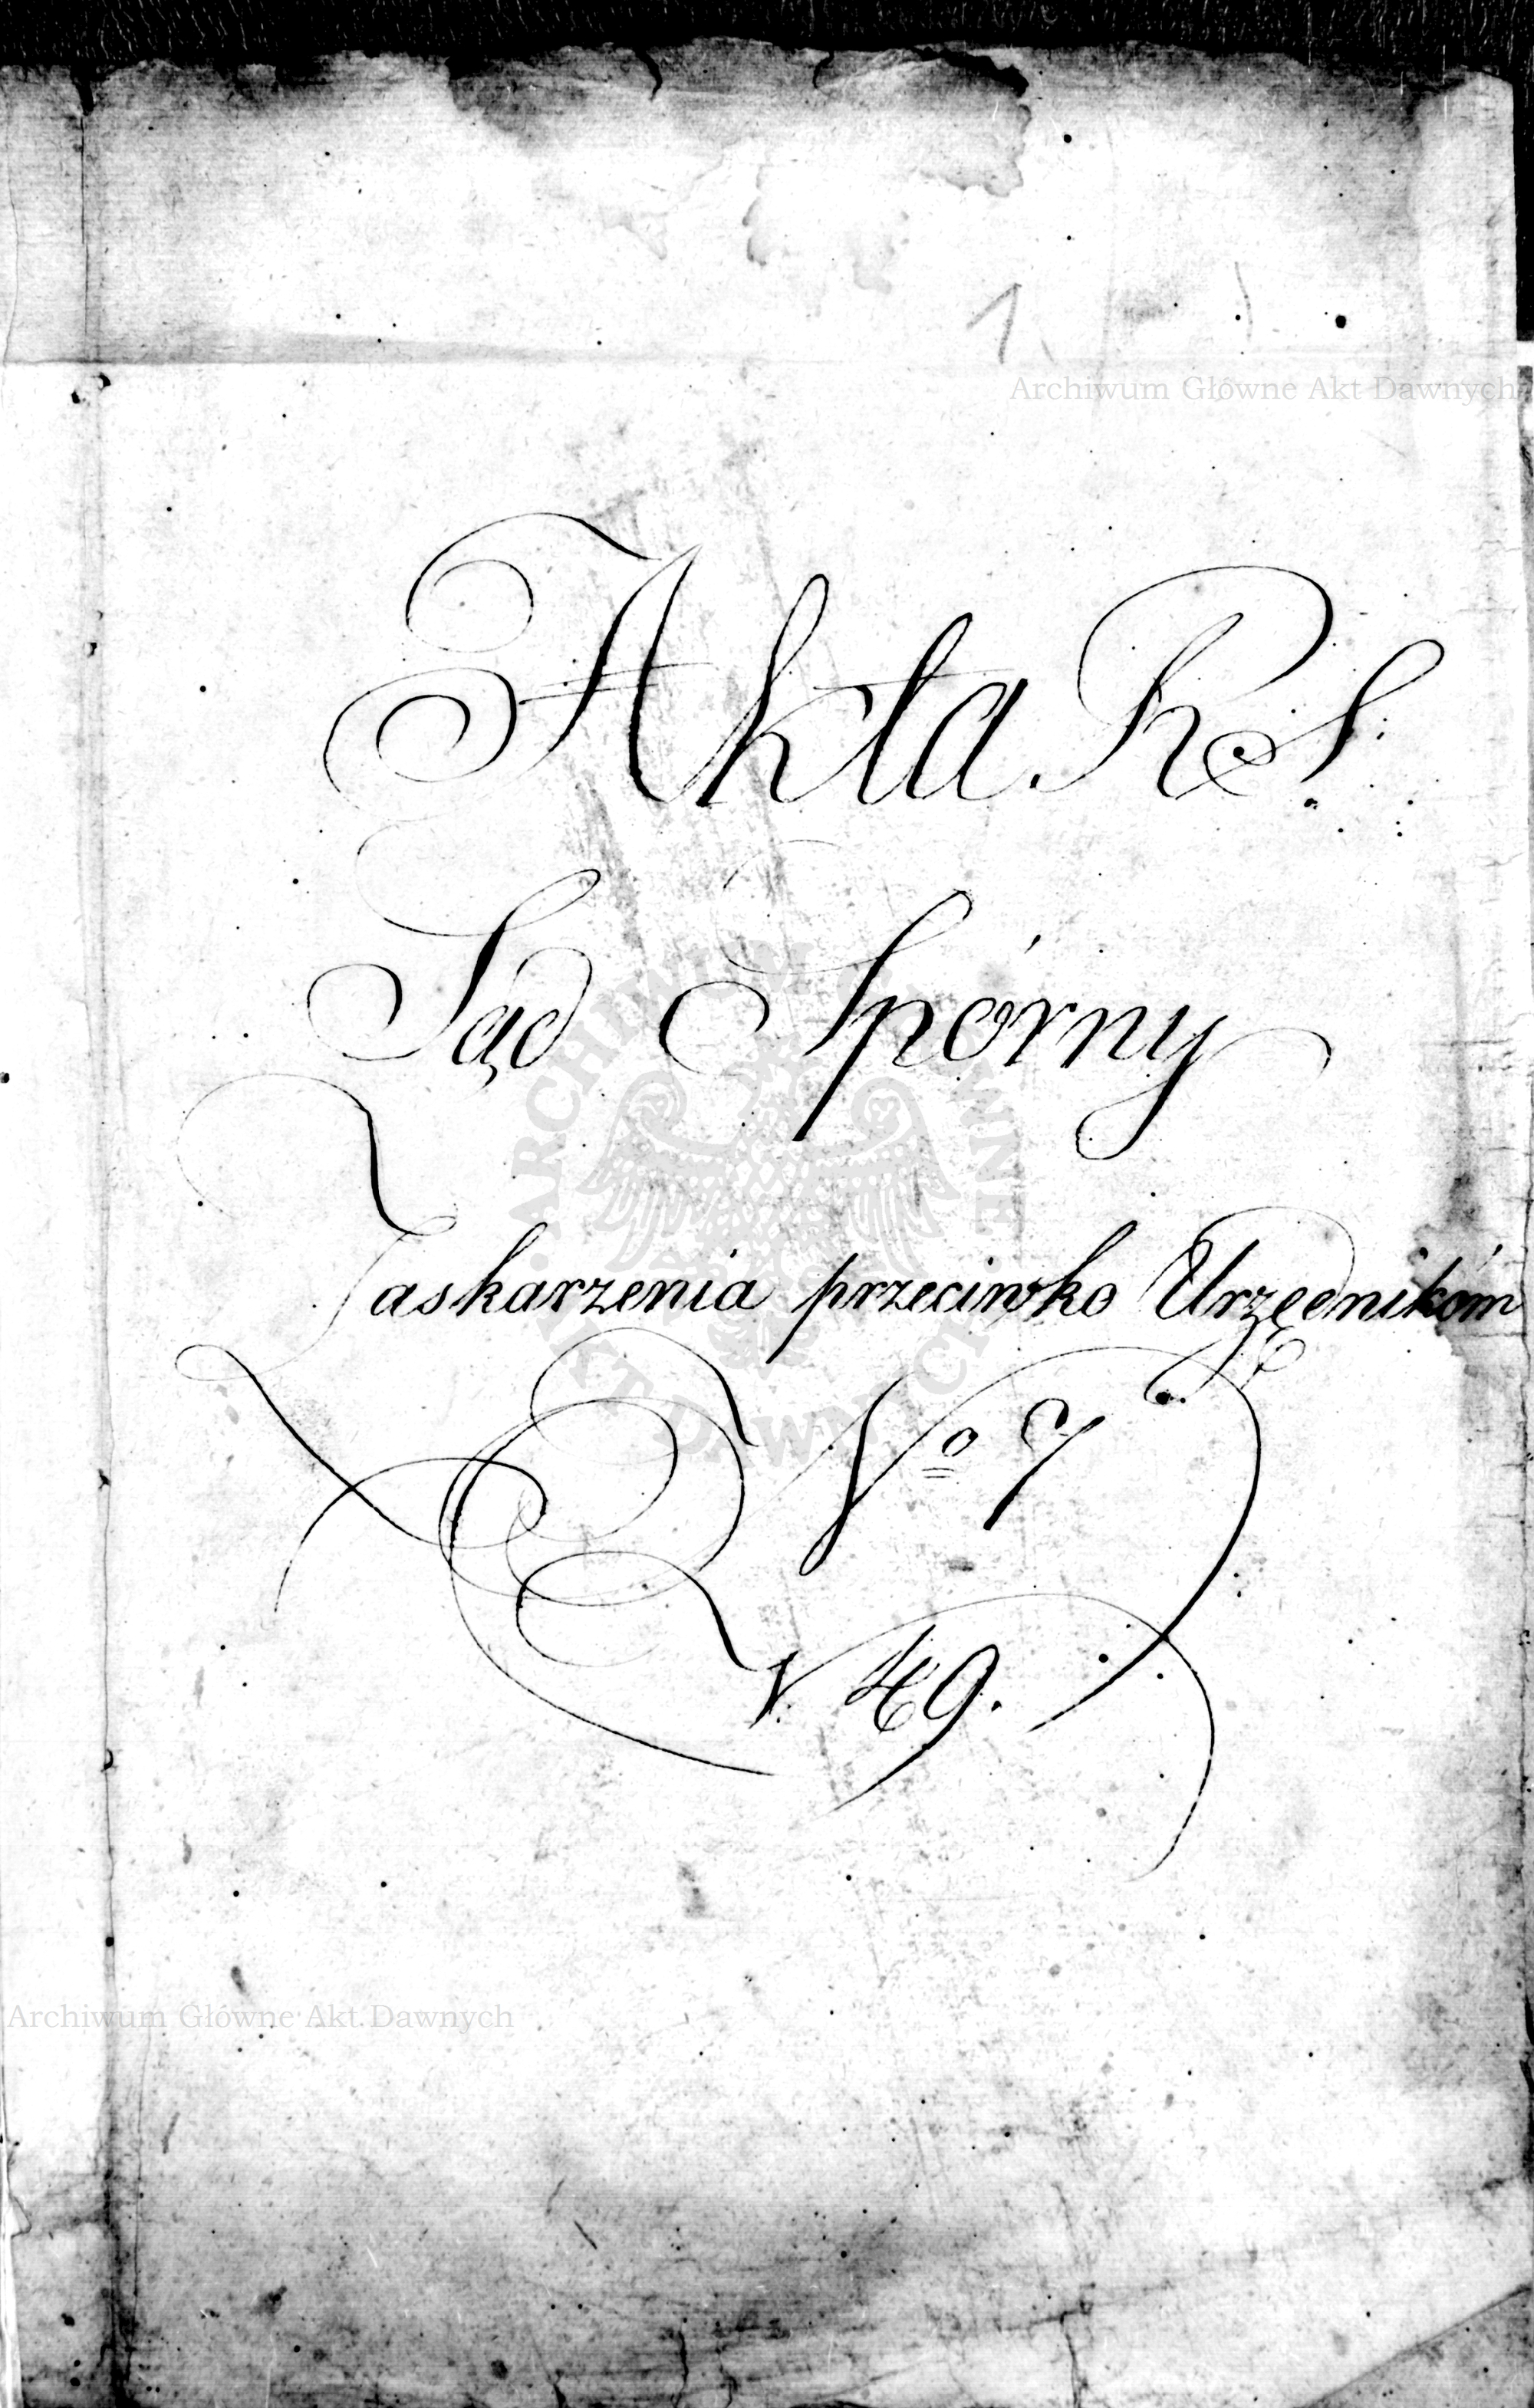 1
Archiwum Główne Akt Dawnych
Akta R. S.
Sąd Spórny
Zaskarzenia przeciwko Urzędnikóm
Nº 7
v. 49.
ARCHIWUM GŁÓWNE AKT DAWNYCH
Archiwum Główne Akt Dawnych